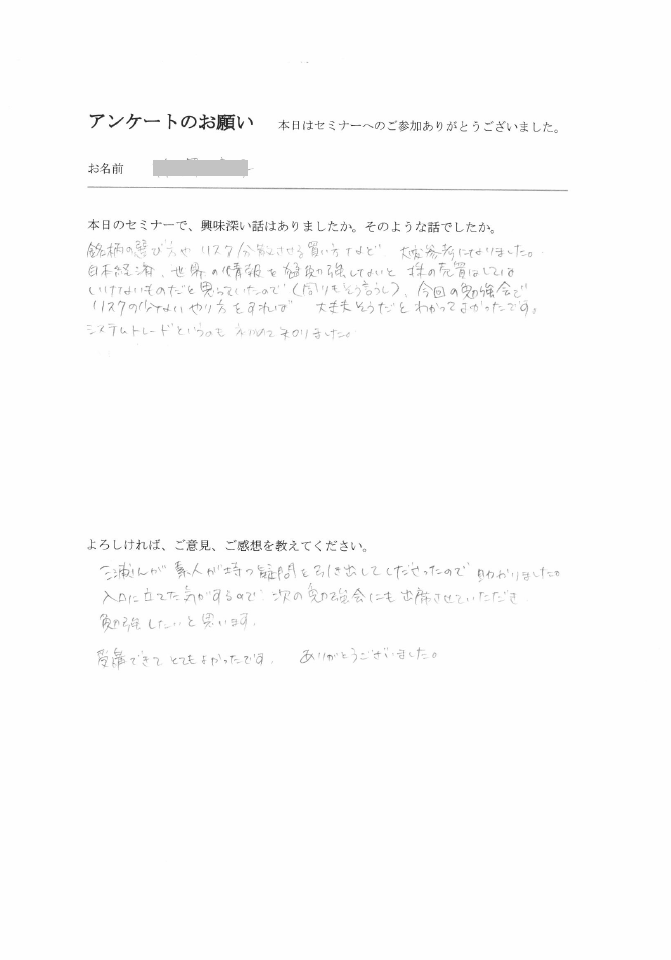 アンケートのお願い 本日はセミナーへのご参加ありがとうございました。
お名前
本日のセミナーで、興味深い話はありましたか。そのような話でしたか。
銘柄の選び方や リスク分散させる買い方など 大変参考になりました。
日本経済、世界の情報を猛勉強してないと 株の売買はしては
いけないものだと思っていたので(周りもそう言うし)、今回の勉強会で
リスクの少ないやり方をすれば 大丈夫そうだとわかってよかったです。
システムトレードというのも 初めて知りました。
よろしければ、ご意見、ご感想を教えてください。
三浦さんが 素人が持つ疑問を引き出してくださったので 助かりました。
入口に立てた気がするので 次の勉強会にも出席させていただき
勉強したいと思います。
受講できてとてもよかったです。 ありがとうございました。